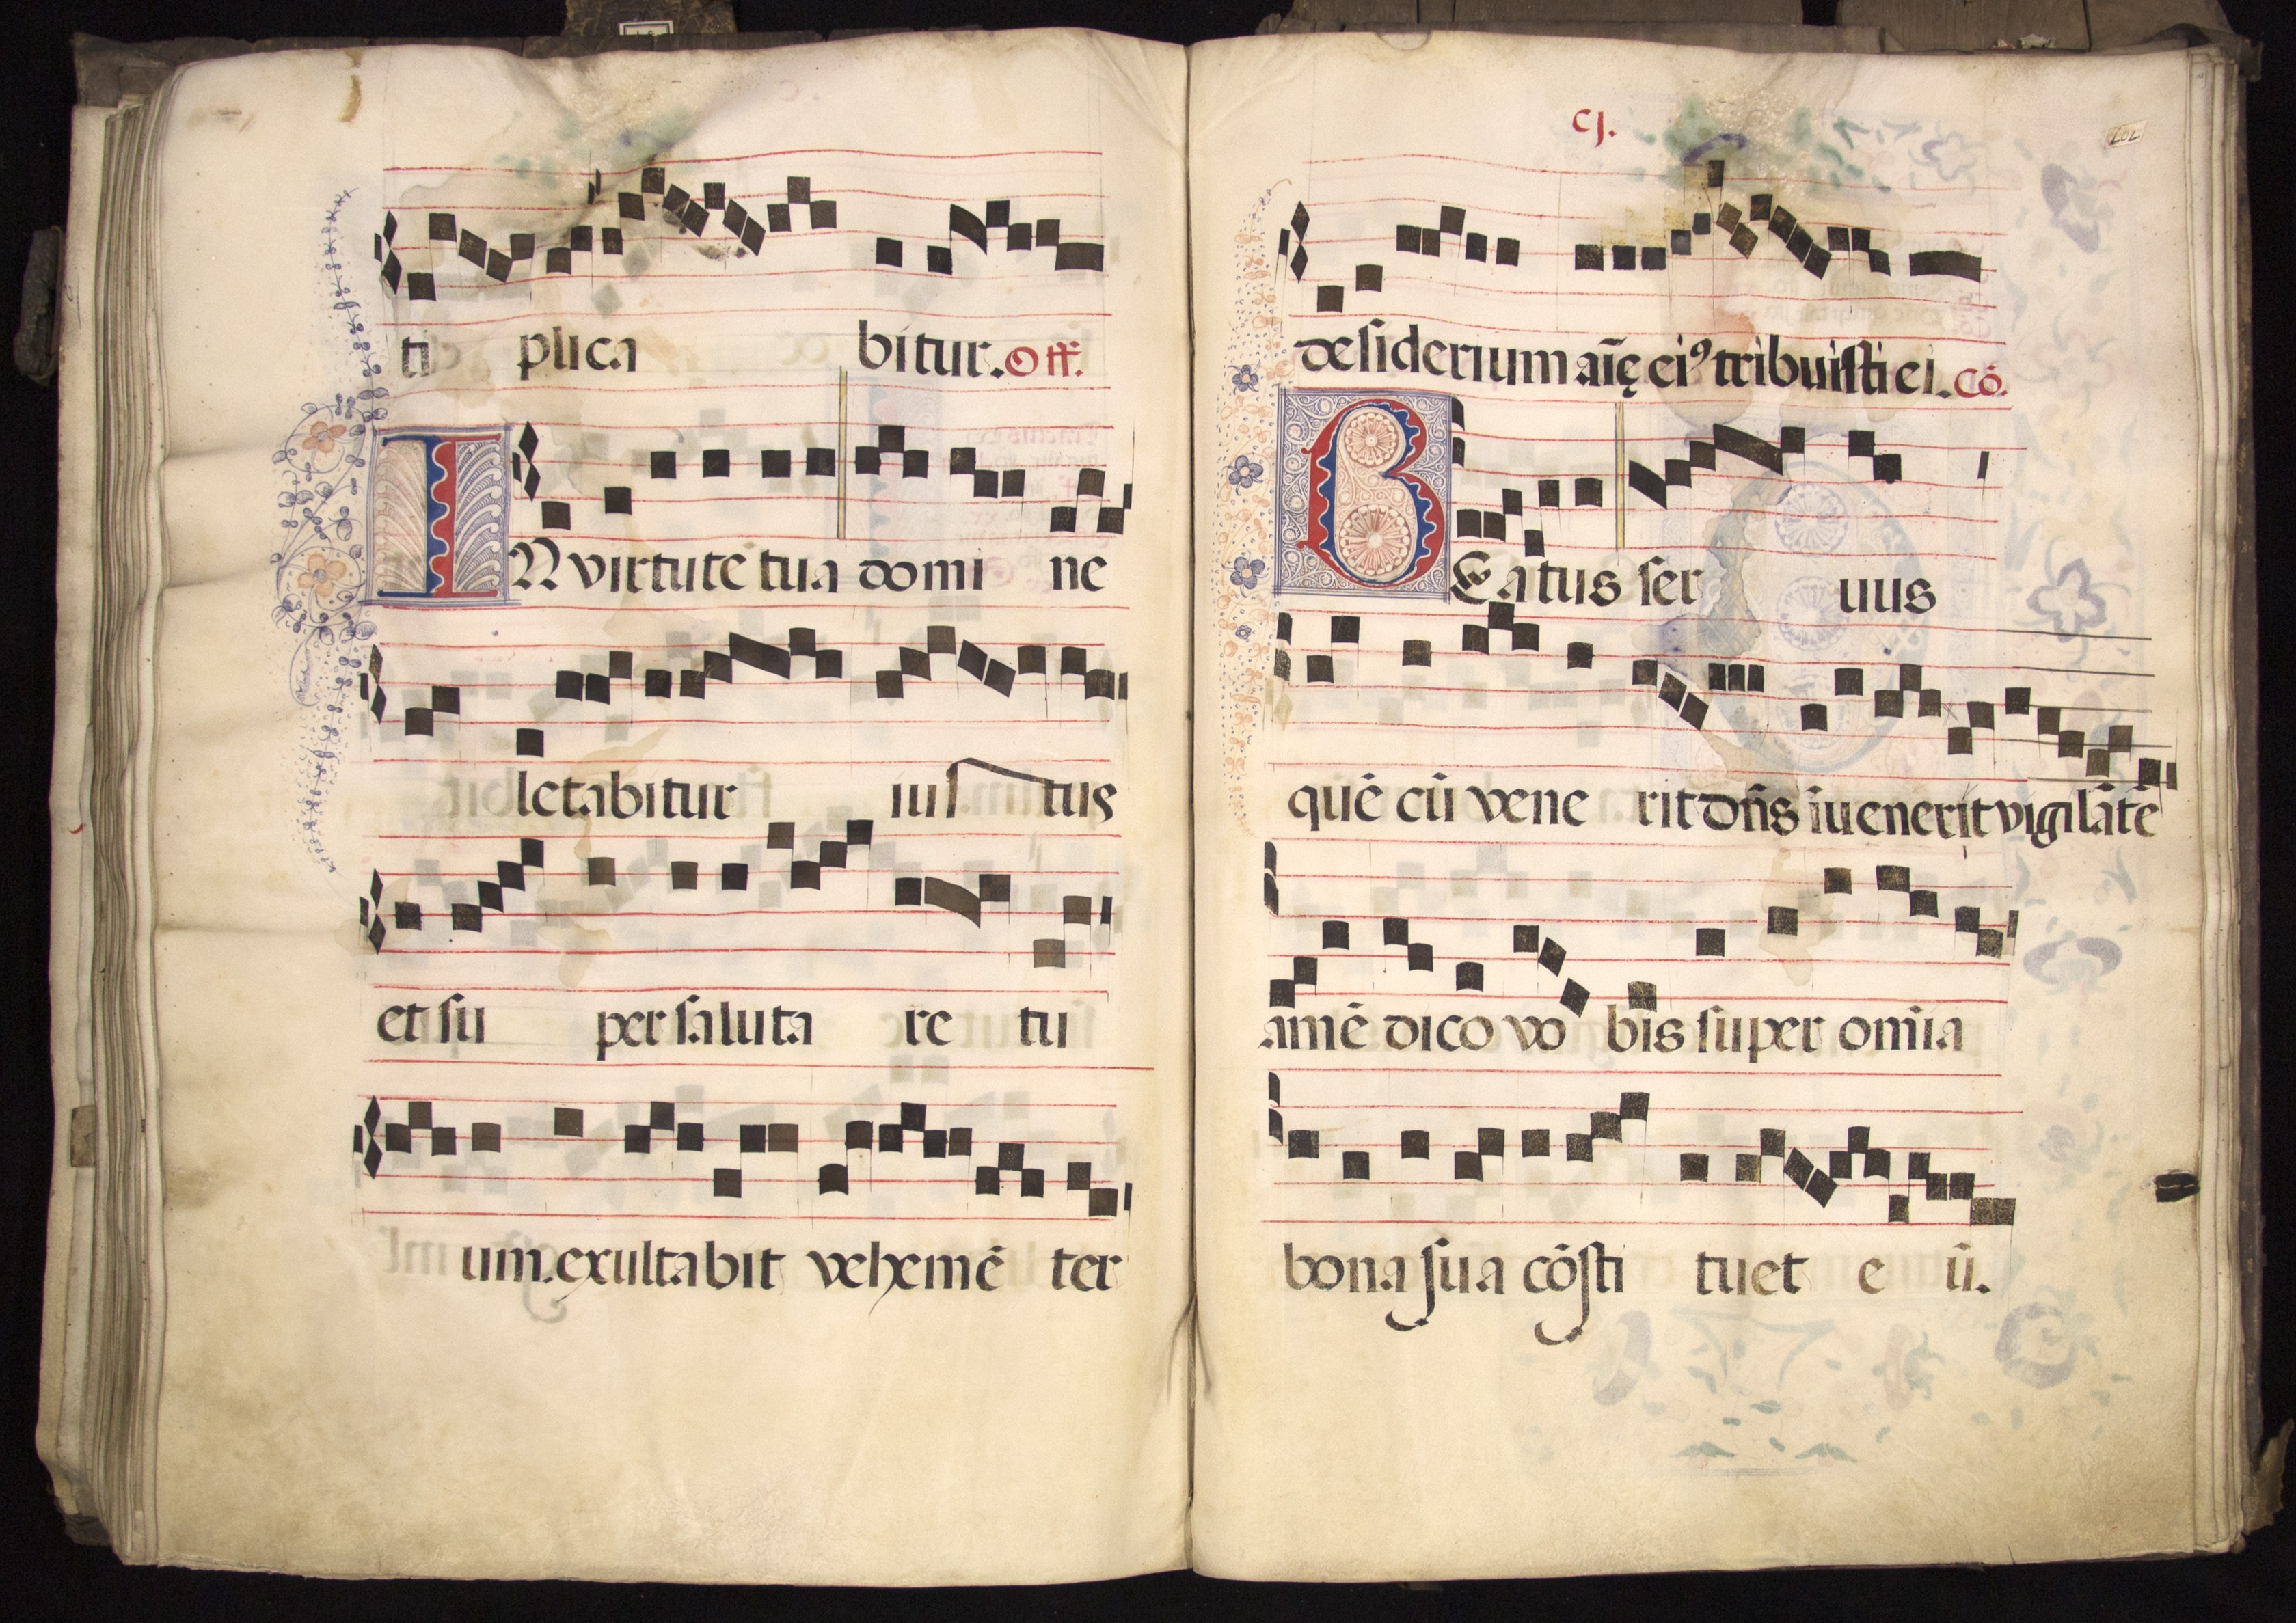 ti plica bitur. Off.
IN virtute tua domi ne
letabitur ius tus
et su per saluta re tu
um. exultabit vehemē ter
cj.
desiderium aīę eiꝰ tribuisti ei. Cō.
BEatus ser uus
quē cū vene rit dn̄s īuenerit vigilātē
amē dico vo bis super om̄ia
bona sua cōsti tuet e ū.